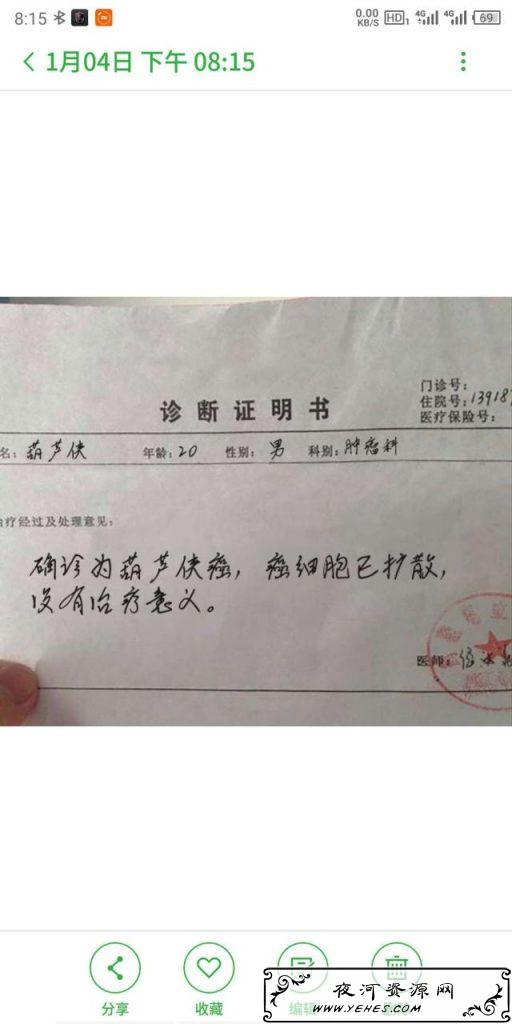 8:15
0.00
KB/S
HD 1
4G
4G
69
1月04日 下午 08:15
门诊号:
诊断证明书
住院号:13918
医疗保险号:
名: 葫芦侠 年龄:20 性别: 男 科别: 肿瘤科
治疗经过及处理意见:
确诊为葫芦侠癌, 癌细胞已扩散,
没有治疗意义。
医师:
分享
收藏
编辑
夜河资源网
WWW.YEHES.COM